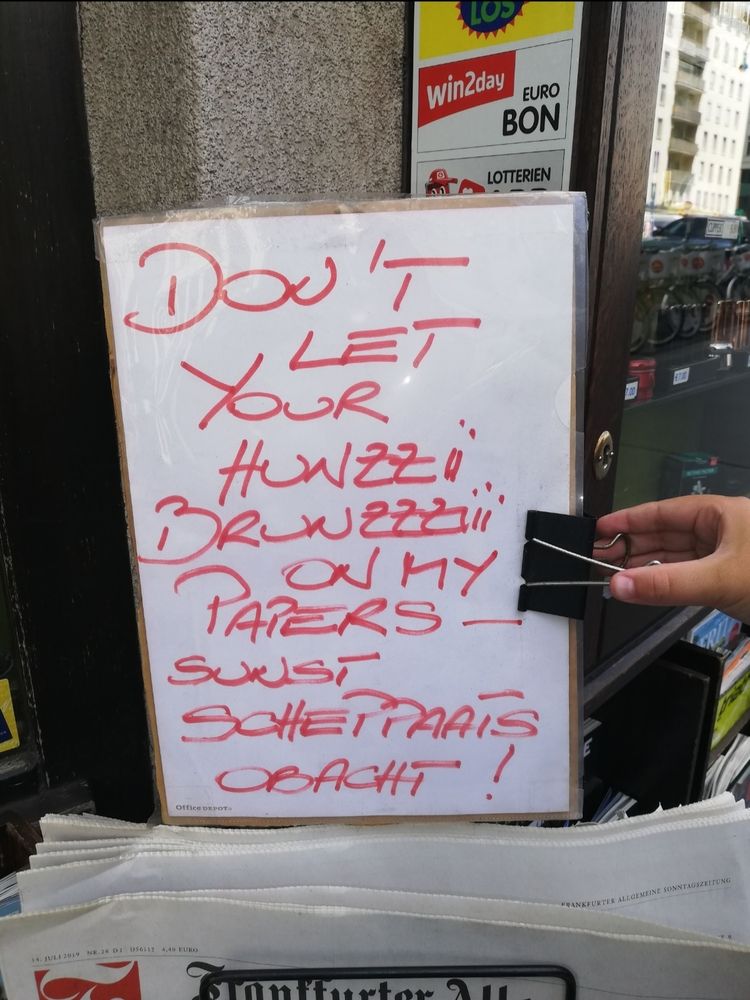 LOS
win2day
EURO
BON
LOTTERIEN
DON'T
LET
YOUR
HUNZZii
BRUNZZZiii
ON MY
PAPERS —
SUNST
SCHEPPAATS
OBACHT !
Office DEPOT
FRANKFURTER ALLGEMEINE SONNTAGSZEITUNG
14. JULI 2019 NR. 28 D1 D56112 4,40 EURO
Frankfurter All